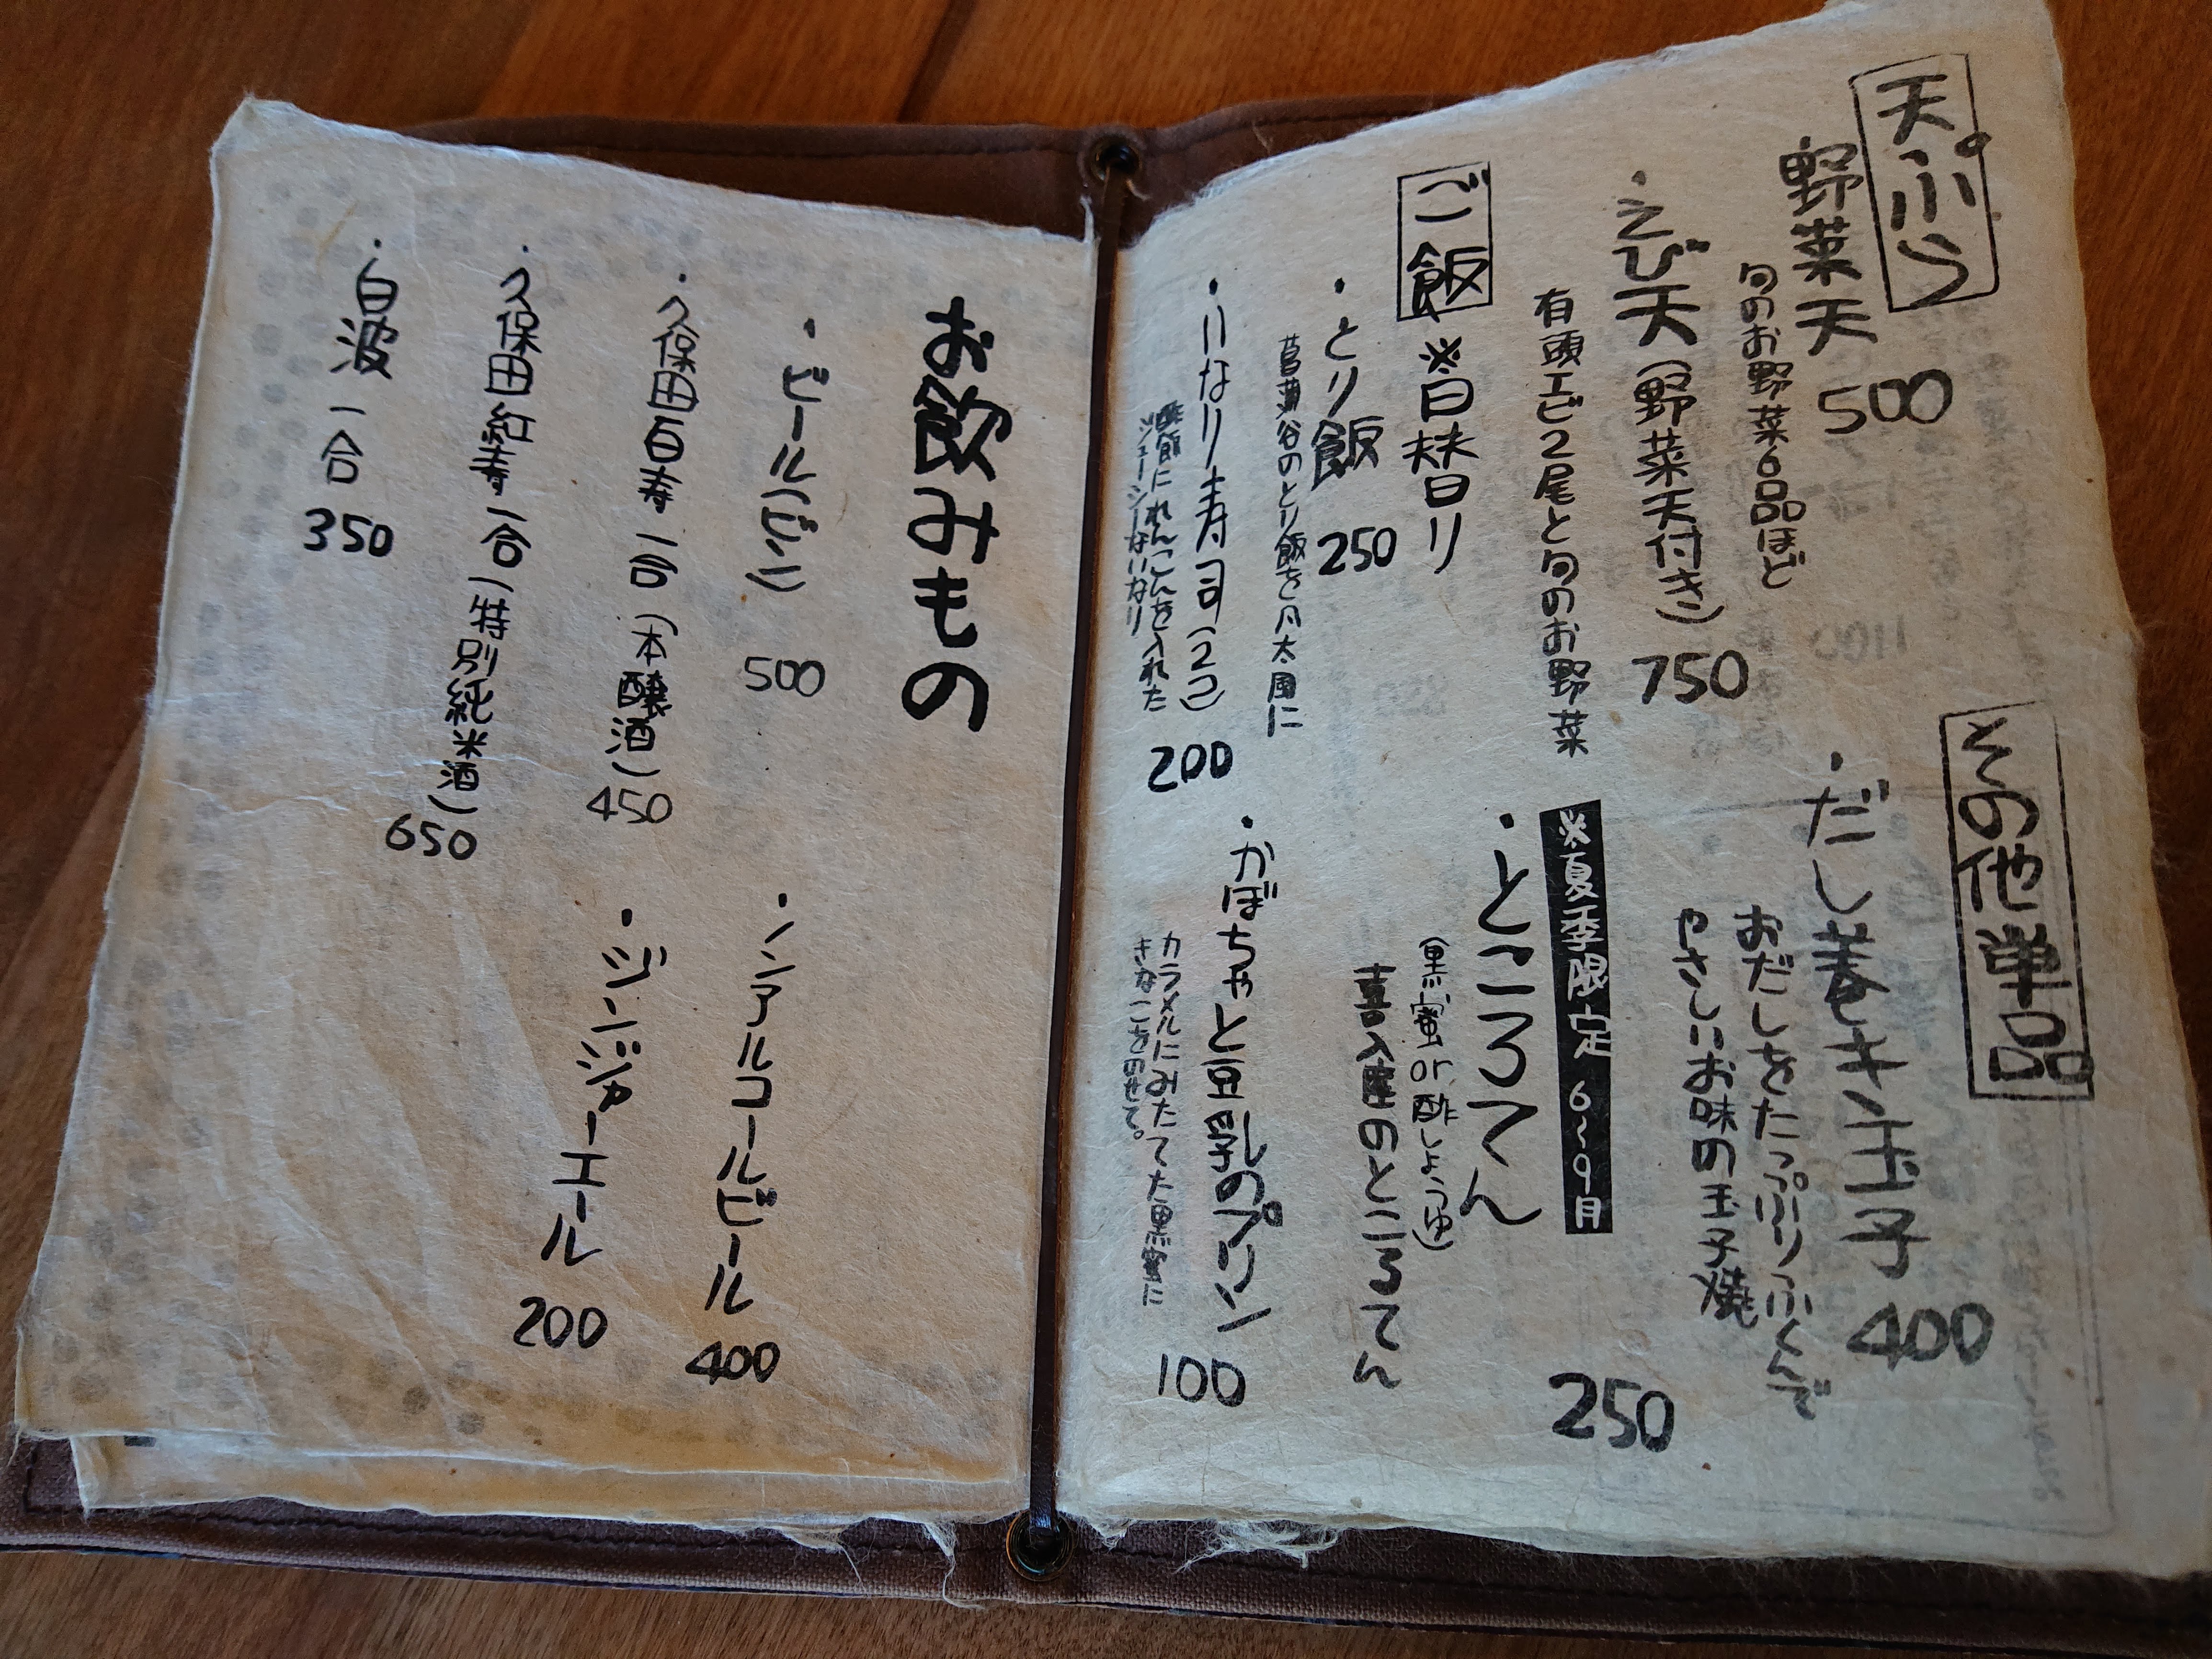 天ぷら
野菜天 500
旬のお野菜6品ほど
・えび天(野菜天付き) 750
有頭エビ2尾と旬のお野菜
ご飯 ※日替り
・とり飯 250
菖蒲谷のとり飯を八太風に
・いなり寿司(2コ) 200
酢飯にれんこんを入れた
ジューシーないなり
その他単品
・だし巻き玉子 400
おだしをたっぷりふくんで
やさしいお味の玉子焼
※夏季限定 6〜9月
・ところてん 250
(黒蜜or酢しょうゆ)
喜入産のところてん
・かぼちゃと豆乳のプリン 100
カラメルにみたてた黒蜜に
きなこをのせて。
お飲みもの
・ビール(ビン) 500
・久保田百寿 一合(本醸酒) 450
・久保田紅寿 一合(特別純米酒) 650
・白波 一合 350
・ノンアルコールビール 400
・ジンジャーエール 200